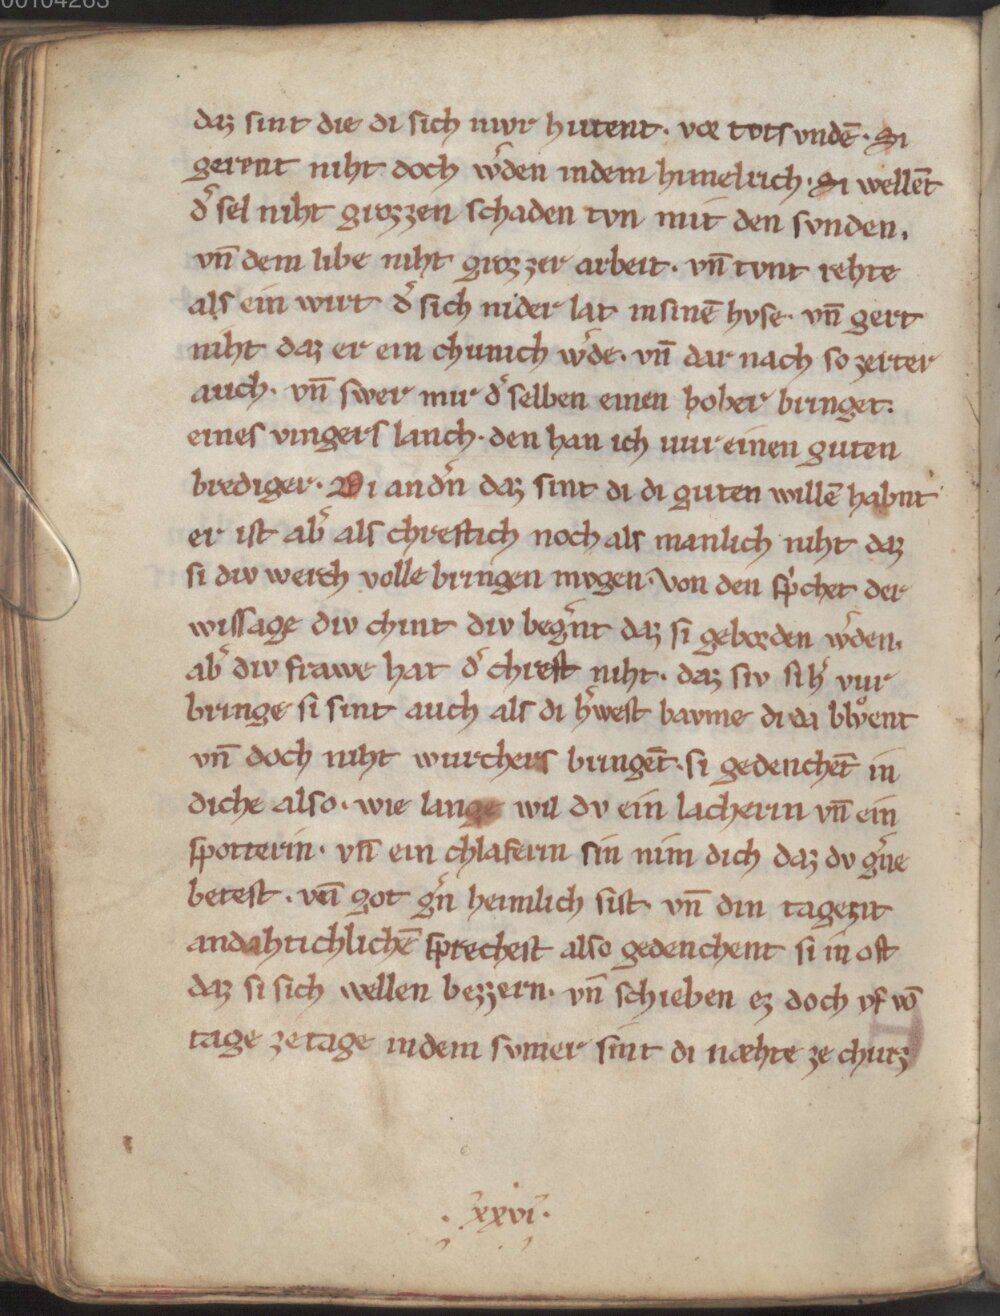 00104263
daz sint die di sich nivr hutent · vor totsundē · Si
gerent niht doch w̾den indem himelrich · Si wellēt
d̾ sel niht grozzen schaden tvn mit den svnden.
vn̄ dem libe niht grozzer arbeit · vn̄ tvnt rehte
als ein wirt d̾ sich nider lat insinē hvse · vn̄ gert
niht daz er ein chunich w̾de · vn̄ dar nach so zerter
auch · vn̄ swer mir d̾ selben einen hoher bringet.
eines vingers lanch · den han ich uur einen guten
brediger · Di and̾n daz sint di di guten willē habnt
er ist ab̾ als chreftich noch als manlich niht daz
si div werch volle bringen mvgen · Von den sp̾chet der
wissage div chint div beg̾nt daz si geborden w̾den.
ab̾ div frawe hat d̾ chreft niht · daz siv sih̾ vur
bringe si sint auch als di h̾west bavme di da blvͦent
vn̄ doch niht wurchers bringēt · si gedenchēt in
diche also · wie lange wil dv ein lacherin vn̄ ein
spotterin · vn̄ ein chlaferin sin nim dich daz dv g̾ne
betest · vn̄ got g̾n heimlich sist vn̄ din tagezit
andahtichlichē sprechest also gedenchent si in oft
daz si sich wellen bezzern · vn̄ schieben ez doch vf vō
tage zetage indem svmer sint di næhte ze churz
· xxvi ·